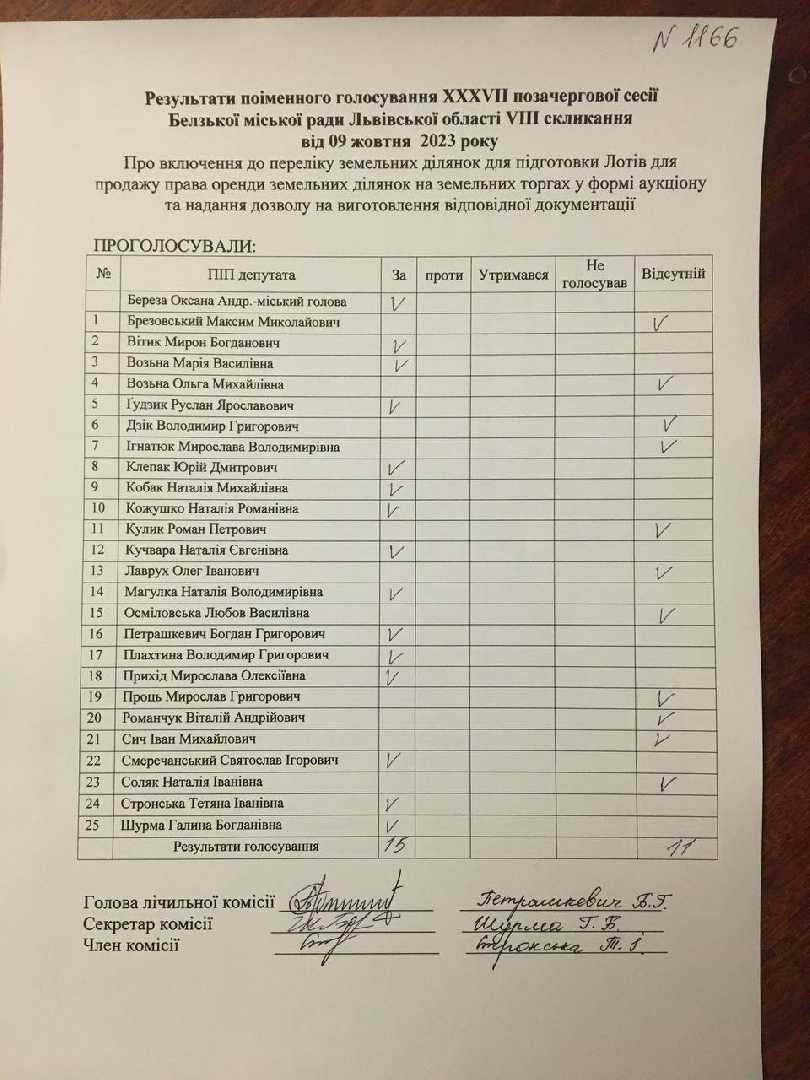 N 1166
Результати поіменного голосування XXXVII позачергової сесії
Белзької міської ради Львівської області VIII скликання
від 09 жовтня 2023 року
Про включення до переліку земельних ділянок для підготовки Лотів для
продажу права оренди земельних ділянок на земельних торгах у формі аукціону
та надання дозволу на виготовлення відповідної документації
ПРОГОЛОСУВАЛИ:
№ ПІП депутата За проти Утримався Не голосував Відсутній
Береза Оксана Андр.-міський голова V
1 Брезовський Максим Миколайович V
2 Вітик Мирон Богданович V
3 Возьна Марія Василівна V
4 Возьна Ольга Михайлівна V
5 Гудзик Руслан Ярославович V
6 Дзік Володимир Григорович V
7 Ігнатюк Мирослава Володимирівна V
8 Клепак Юрій Дмитрович V
9 Кобак Наталія Михайлівна V
10 Кожушко Наталія Романівна V
11 Кулик Роман Петрович V
12 Кучвара Наталія Євгенівна V
13 Лаврух Олег Іванович V
14 Магулка Наталія Володимирівна V
15 Осміловська Любов Василівна V
16 Петрашкевич Богдан Григорович V
17 Плахтина Володимир Григорович V
18 Прихід Мирослава Олексіївна V
19 Проць Мирослав Григорович V
20 Романчук Віталій Андрійович V
21 Сич Іван Михайлович V
22 Смеречанський Святослав Ігорович V
23 Соляк Наталія Іванівна V
24 Стронська Тетяна Іванівна V
25 Шурма Галина Богданівна V
Результати голосування 15 11
Голова лічильної комісії Петрашкевич Б.Г.
Секретар комісії Шурма Г. Б.
Член комісії Стронська Т. І.